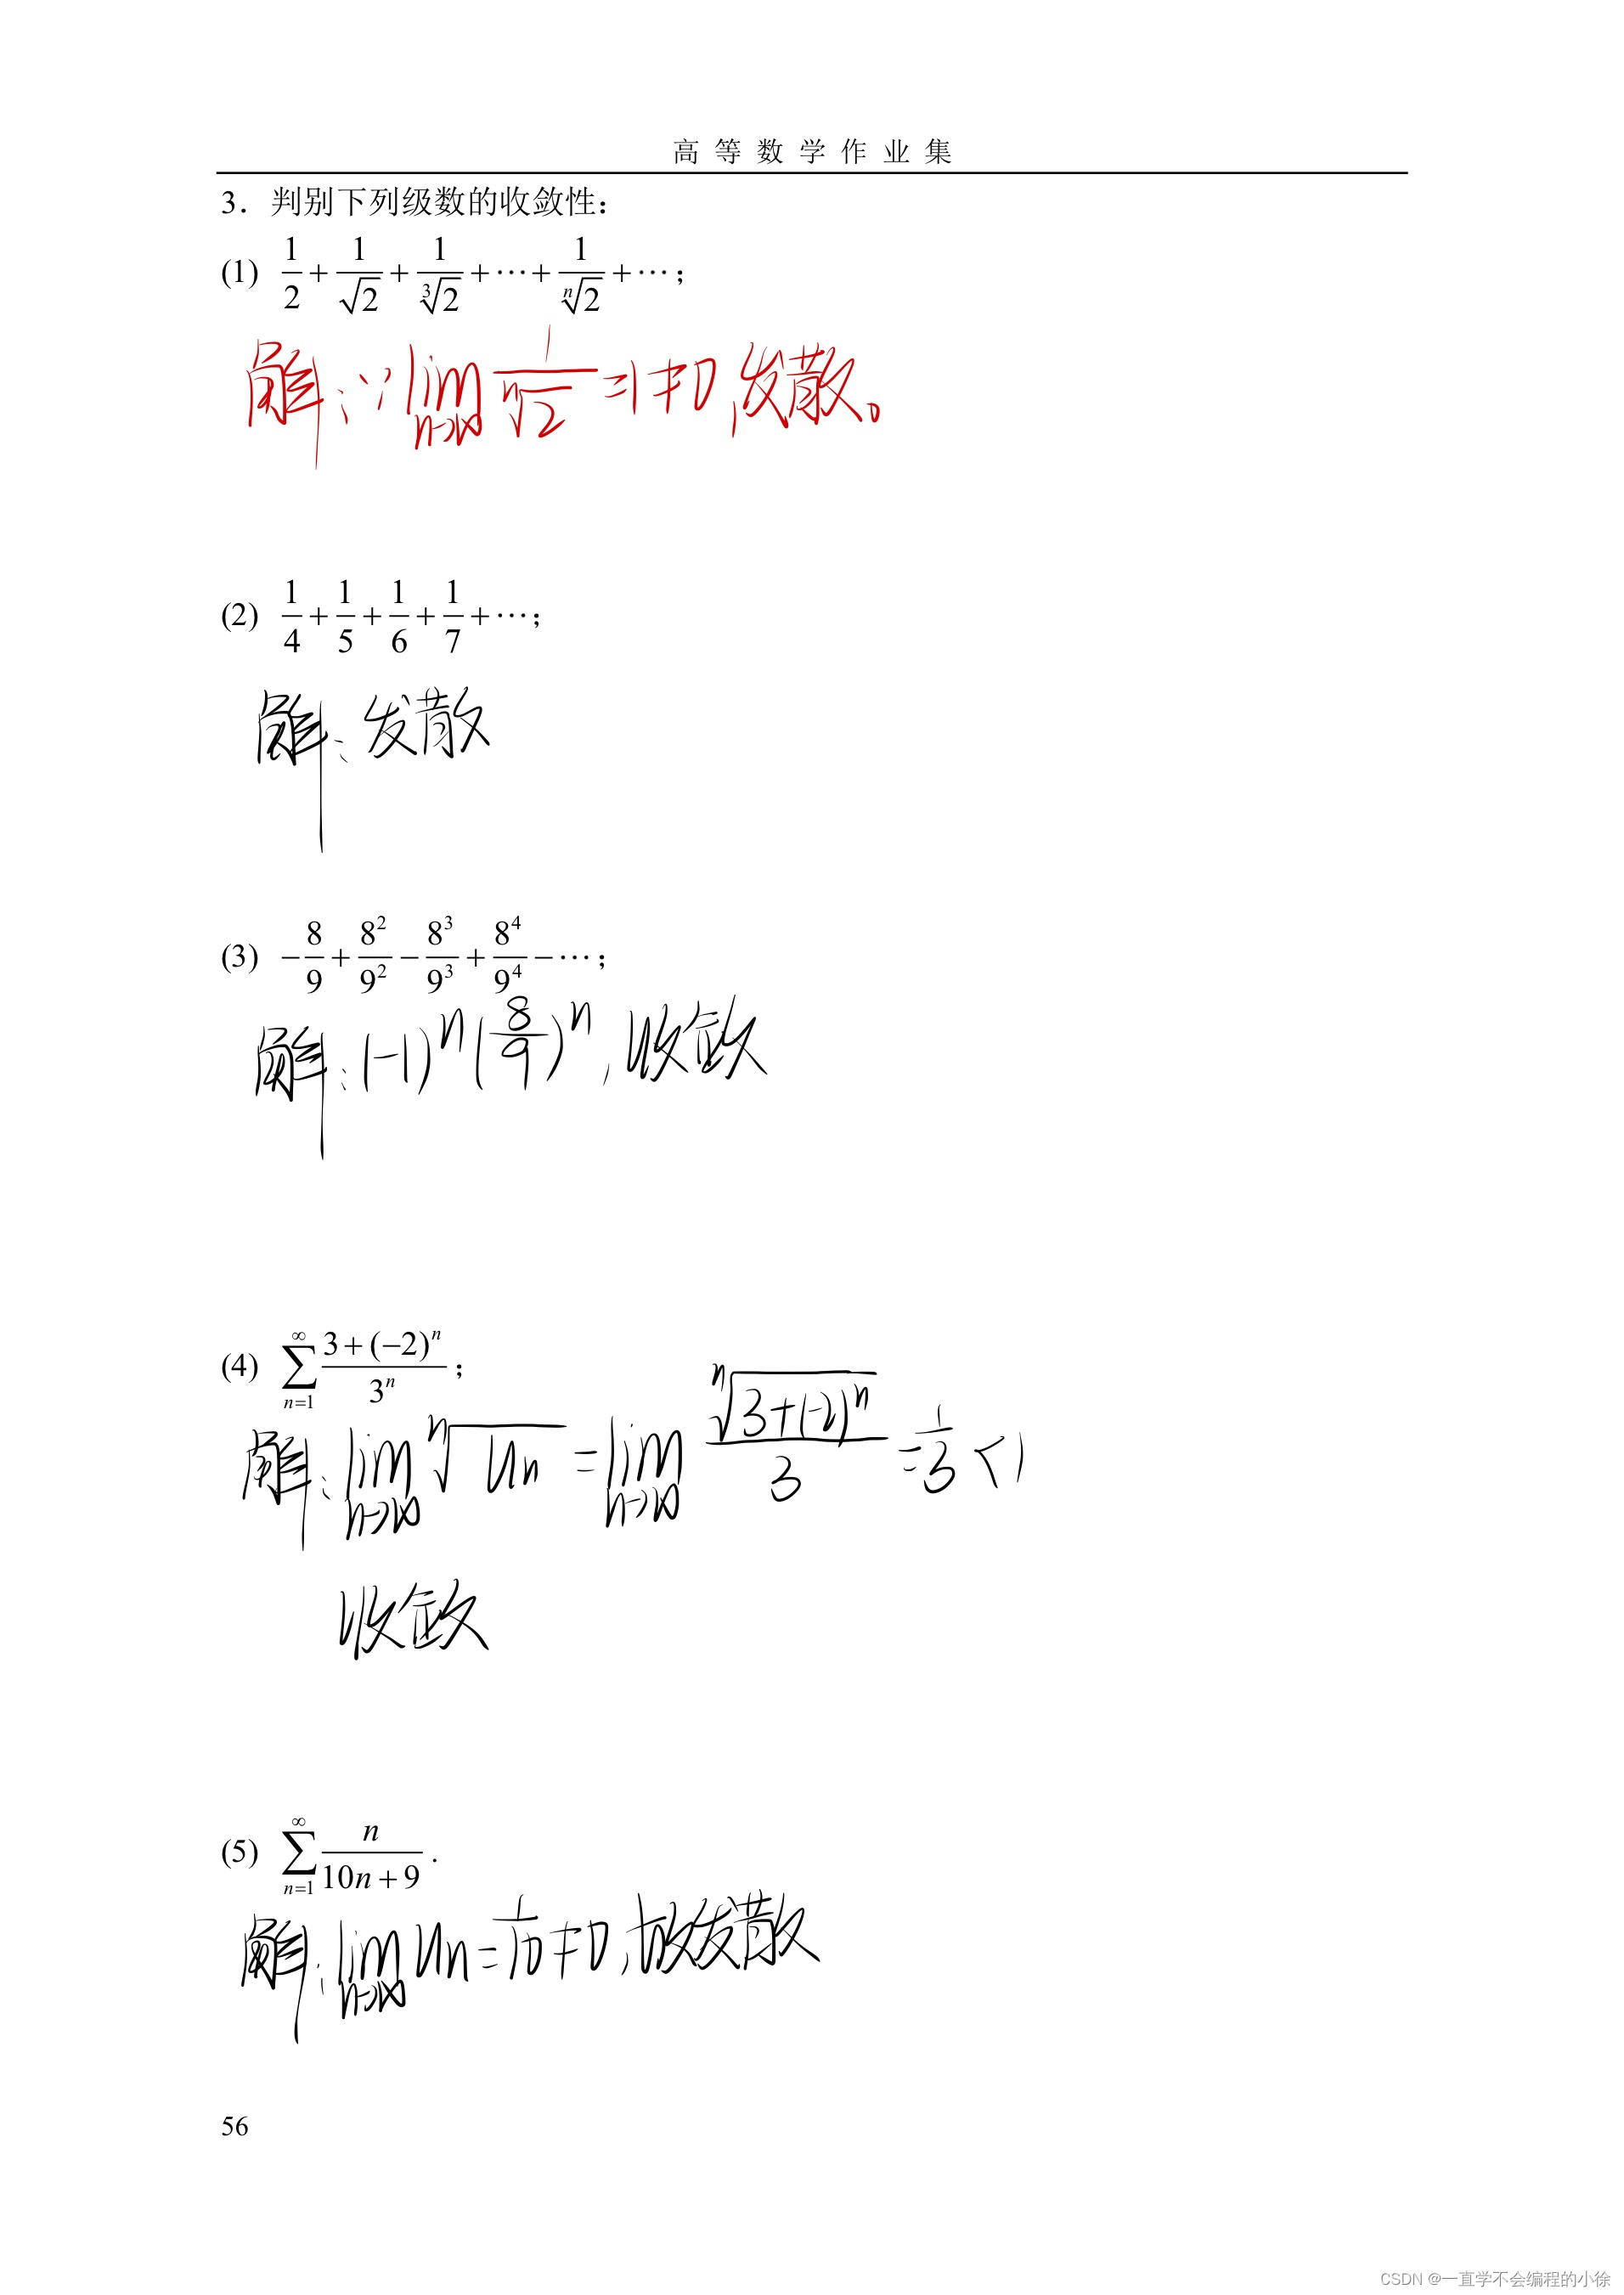 高等数学作业集
3. 判别下列级数的收敛性:
(1) $\frac{1}{2}+\frac{1}{\sqrt{2}}+\frac{1}{\sqrt[3]{2}}+\cdots+\frac{1}{\sqrt[n]{2}}+\cdots$;
解:∵ $\lim_{n\to\infty}\frac{1}{\sqrt[n]{2}}=1\neq0$,发散。
(2) $\frac{1}{4}+\frac{1}{5}+\frac{1}{6}+\frac{1}{7}+\cdots$;
解:发散
(3) $-\frac{8}{9}+\frac{8^2}{9^2}-\frac{8^3}{9^3}+\frac{8^4}{9^4}-\cdots$;
解:$(-1)^n(\frac{8}{9})^n$,收敛
(4) $\sum_{n=1}^{\infty}\frac{3+(-2)^n}{3^n}$;
解:$\lim_{n\to\infty}\sqrt[n]{u_n}=\lim_{n\to\infty}\frac{\sqrt[n]{3+(-2)^n}}{3}=\frac{1}{3}<1$
收敛
(5) $\sum_{n=1}^{\infty}\frac{n}{10n+9}$.
解:$\lim_{n\to\infty}u_n=\frac{1}{10}\neq0$,故发散
56
CSDN @一直学不会编程的小徐